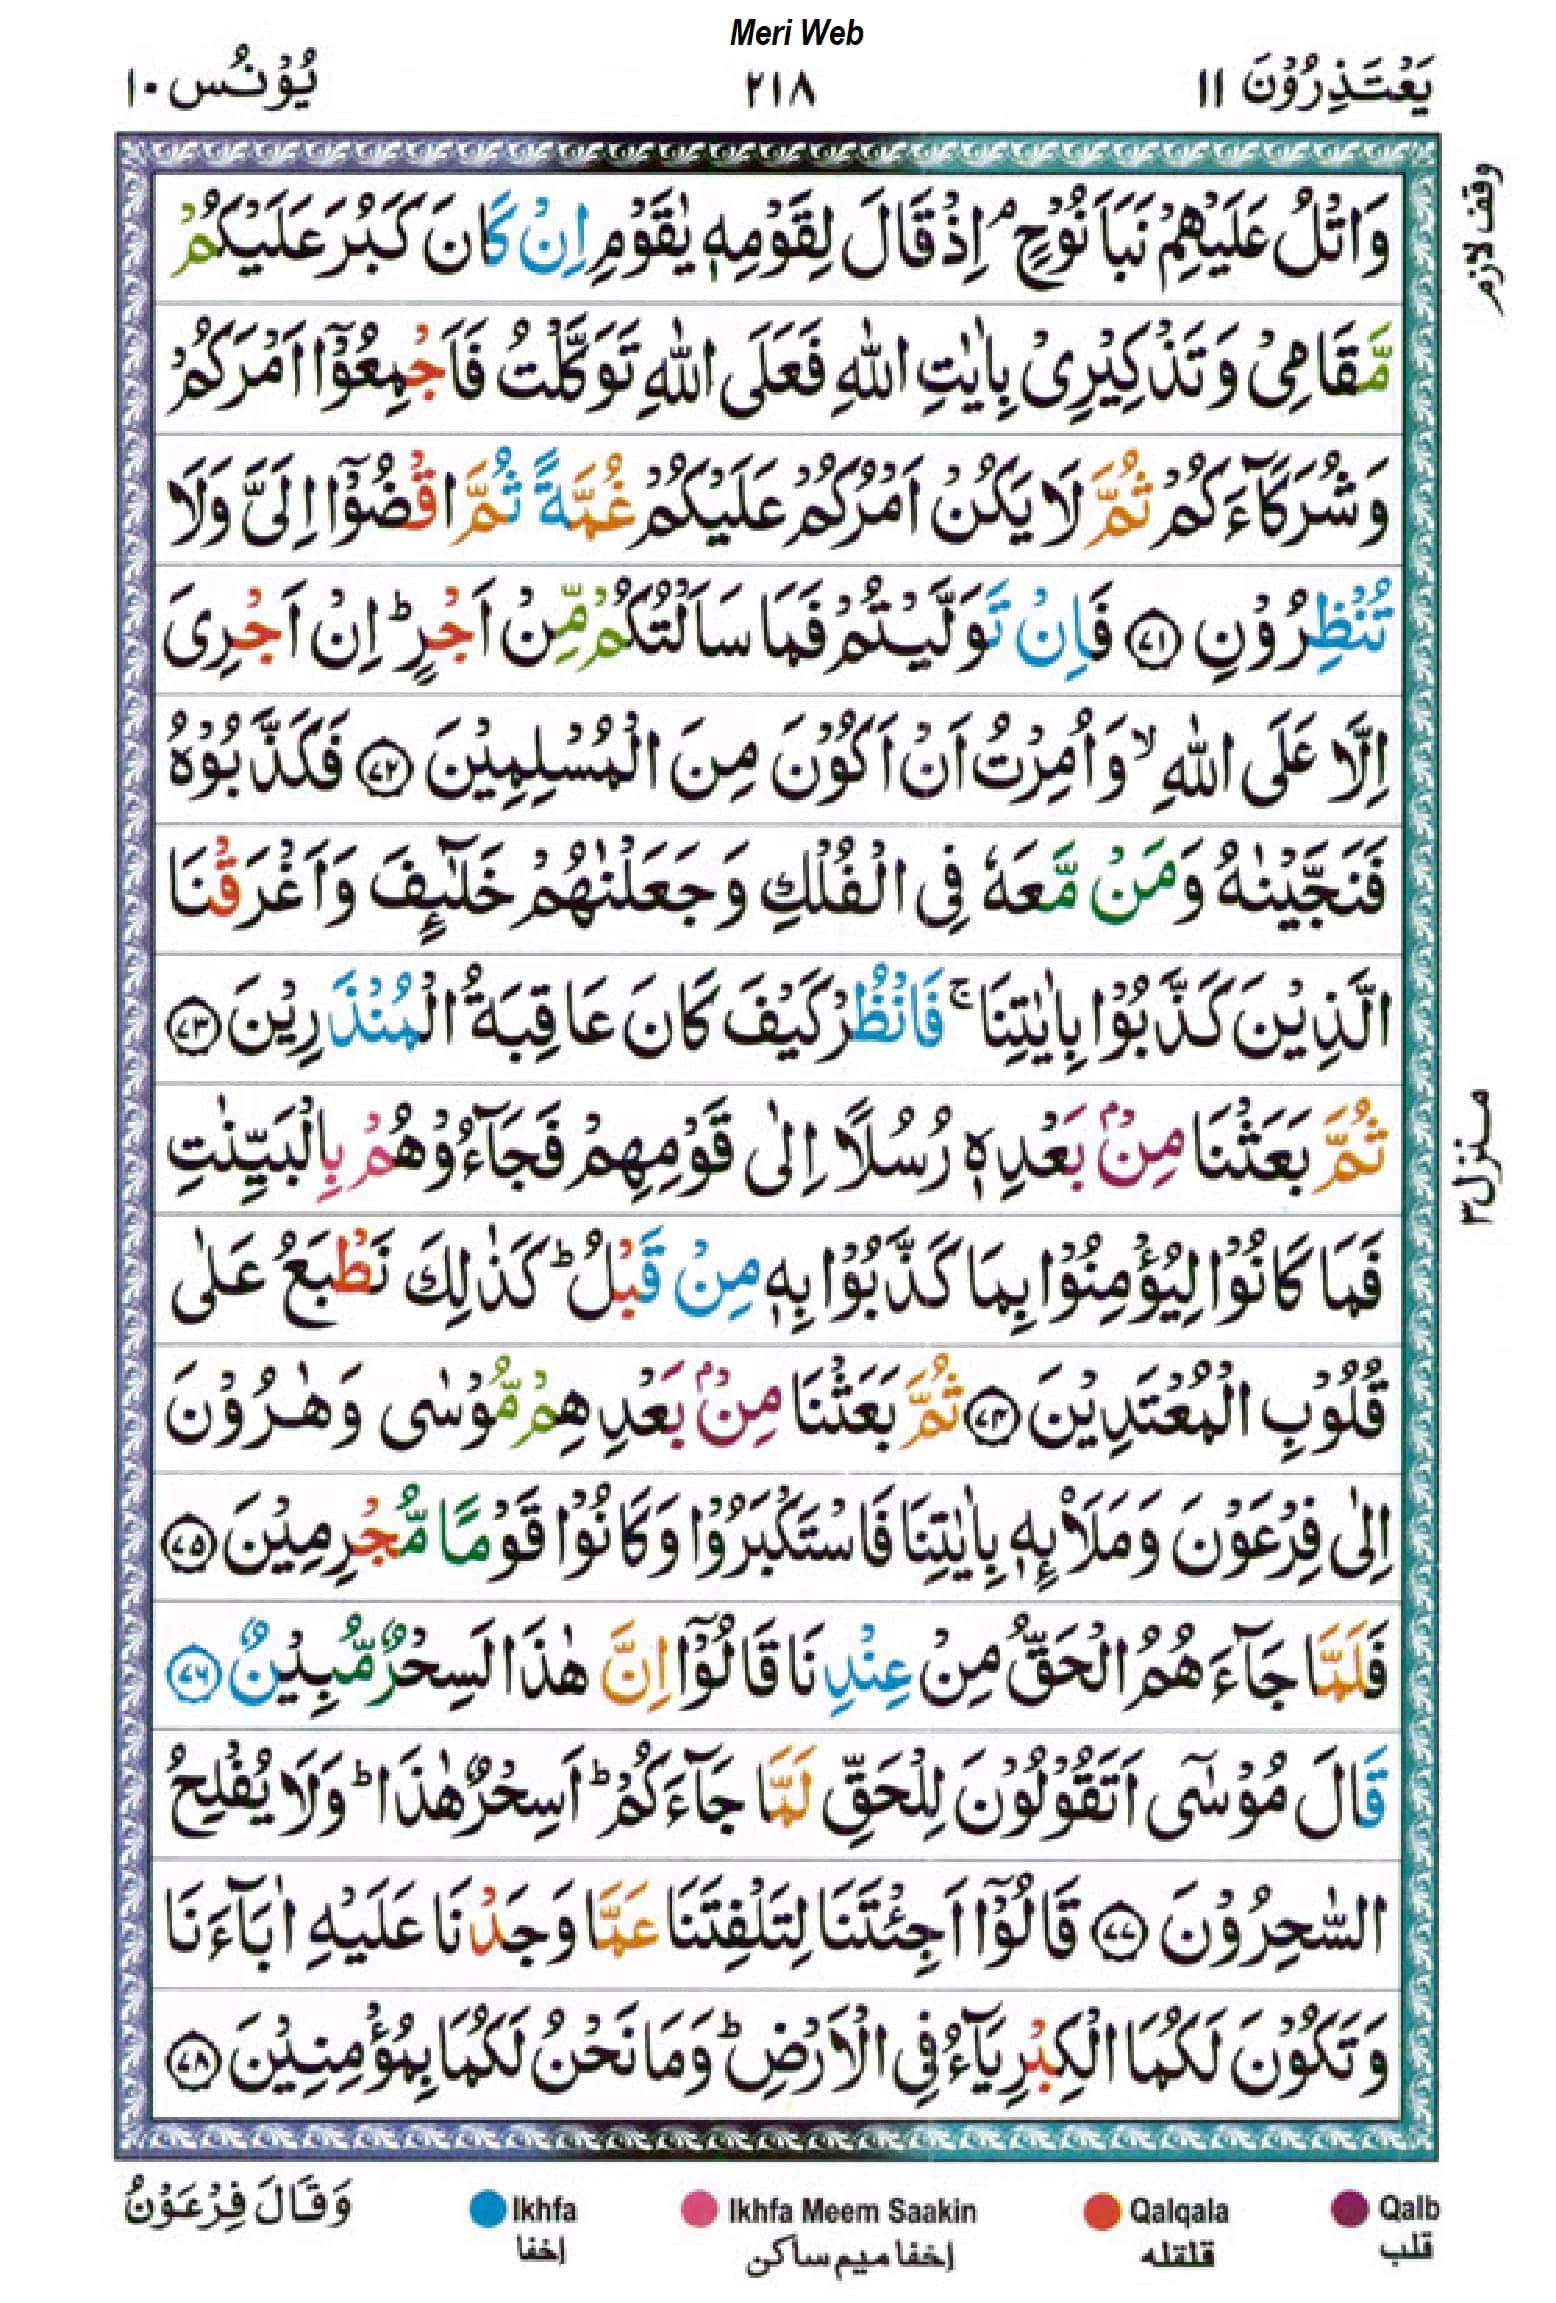 Meri Web
يَعْتَذِرُوْنَ ١١
٢١٨
يُوْنُس ١٠
وقف لازم
وَاتْلُ عَلَيْهِمْ نَبَاَ نُوْحٍ ۘ اِذْ قَالَ لِقَوْمِهٖ يٰقَوْمِ اِنْ كَانَ كَبُرَ عَلَيْكُمْ
مَّقَامِيْ وَتَذْكِيْرِيْ بِاٰيٰتِ اللّٰهِ فَعَلَى اللّٰهِ تَوَكَّلْتُ فَاَجْمِعُوْٓا اَمْرَكُمْ
وَشُرَكَآءَكُمْ ثُمَّ لَا يَكُنْ اَمْرُكُمْ عَلَيْكُمْ غُمَّةً ثُمَّ اقْضُوْٓا اِلَيَّ وَلَا
تُنْظِرُوْنِ ۝٧١ فَاِنْ تَوَلَّيْتُمْ فَمَا سَاَلْتُكُمْ مِّنْ اَجْرٍ ؕ اِنْ اَجْرِيَ
اِلَّا عَلَى اللّٰهِ ۙ وَاُمِرْتُ اَنْ اَكُوْنَ مِنَ الْمُسْلِمِيْنَ ۝٧٢ فَكَذَّبُوْهُ
فَنَجَّيْنٰهُ وَمَنْ مَّعَهٗ فِي الْفُلْكِ وَجَعَلْنٰهُمْ خَلٰٓئِفَ وَاَغْرَقْنَا
الَّذِيْنَ كَذَّبُوْا بِاٰيٰتِنَا ۚ فَانْظُرْ كَيْفَ كَانَ عَاقِبَةُ الْمُنْذَرِيْنَ ۝٧٣
ثُمَّ بَعَثْنَا مِنْۢ بَعْدِهٖ رُسُلًا اِلٰى قَوْمِهِمْ فَجَآءُوْهُمْ بِالْبَيِّنٰتِ
فَمَا كَانُوْا لِيُؤْمِنُوْا بِمَا كَذَّبُوْا بِهٖ مِنْ قَبْلُ ؕ كَذٰلِكَ نَطْبَعُ عَلٰى
قُلُوْبِ الْمُعْتَدِيْنَ ۝٧٤ ثُمَّ بَعَثْنَا مِنْۢ بَعْدِهِمْ مُّوْسٰى وَهٰرُوْنَ
اِلٰى فِرْعَوْنَ وَمَلَا۟ئِهٖ بِاٰيٰتِنَا فَاسْتَكْبَرُوْا وَكَانُوْا قَوْمًا مُّجْرِمِيْنَ ۝٧٥
فَلَمَّا جَآءَهُمُ الْحَقُّ مِنْ عِنْدِنَا قَالُوْٓا اِنَّ هٰذَا لَسِحْرٌ مُّبِيْنٌ ۝٧٦
قَالَ مُوْسٰٓى اَتَقُوْلُوْنَ لِلْحَقِّ لَمَّا جَآءَكُمْ ؕ اَسِحْرٌ هٰذَا ؕ وَلَا يُفْلِحُ
السّٰحِرُوْنَ ۝٧٧ قَالُوْٓا اَجِئْتَنَا لِتَلْفِتَنَا عَمَّا وَجَدْنَا عَلَيْهِ اٰبَآءَنَا
وَتَكُوْنَ لَكُمَا الْكِبْرِيَآءُ فِي الْاَرْضِ ؕ وَمَا نَحْنُ لَكُمَا بِمُؤْمِنِيْنَ ۝٧٨
منزل ٣
وَقَالَ فِرْعَوْنُ
Ikhfa
Ikhfa Meem Saakin
Qalqala
Qalb
إخفا
إخفا ميم ساكن
قلقله
قلب